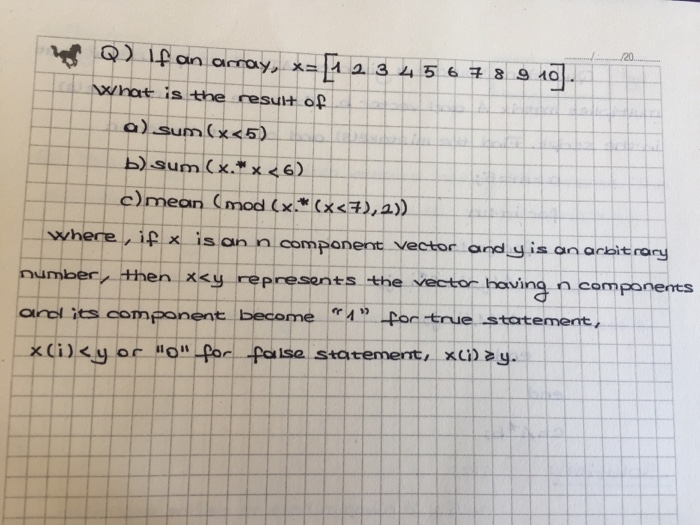 /20
Q) If an array, x = [1 2 3 4 5 6 7 8 9 10].
What is the result of
a) sum(x<5)
b) sum(x.*x<6)
c) mean(mod(x.*(x<7),2))
where, if x is an n component vector and y is an arbitrary
number, then x<y represents the vector having n components
and its component become "1" for true statement,
x(i)<y or "0" for false statement, x(i)≥y.